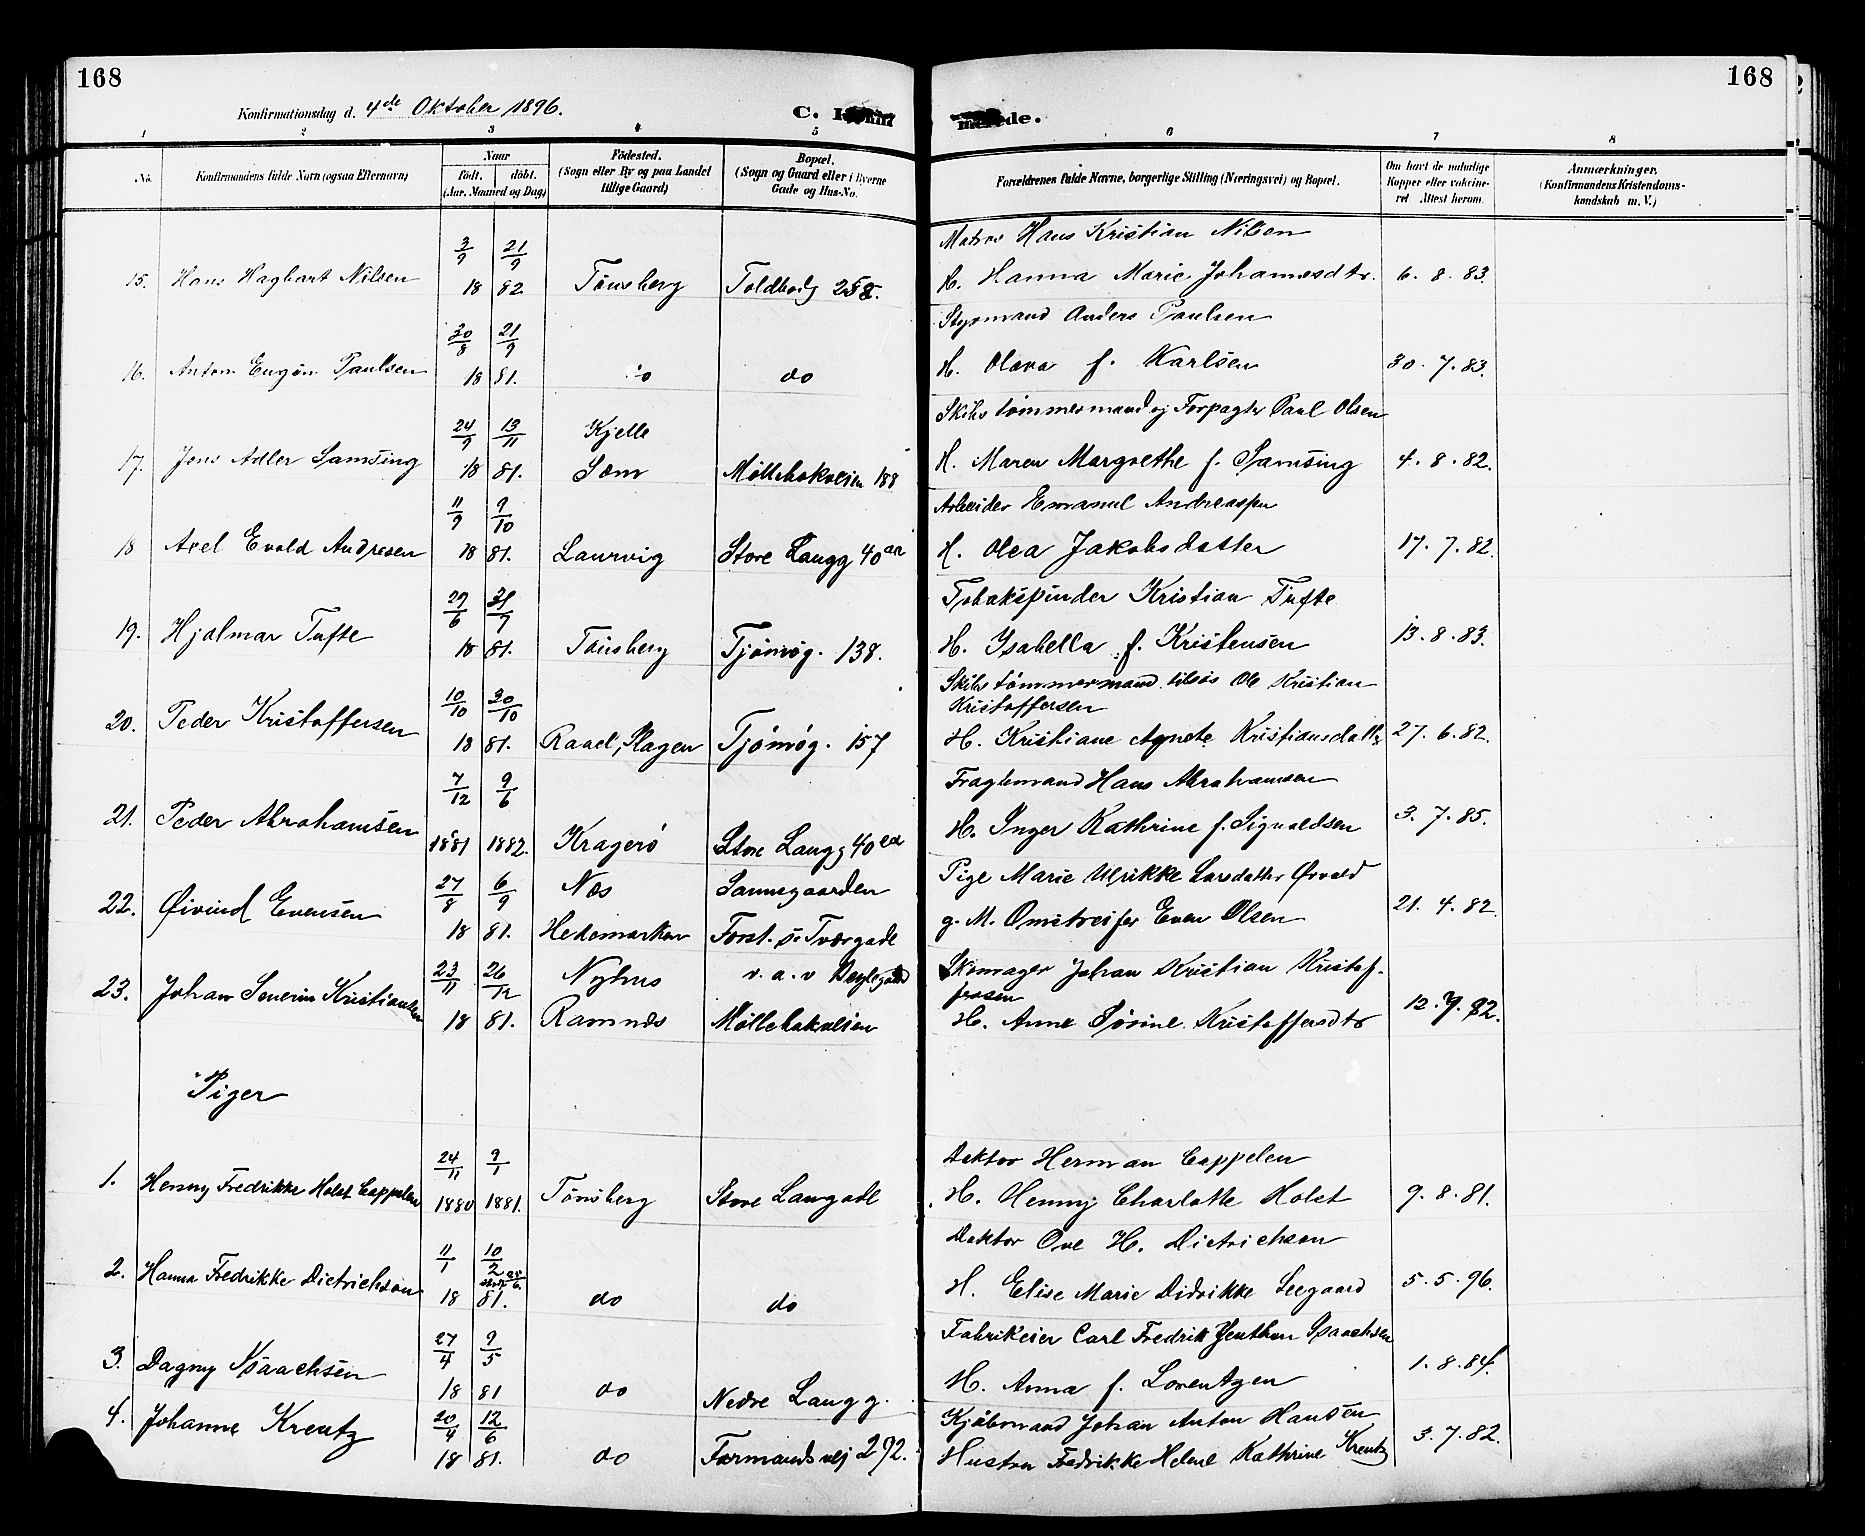 168
168
Konfirmationsdag d. 4de Oktober 1896.
C.
1 2 3 4 5 6 7 8
No.
Konfirmandens fulde Navn (ogsaa Efternavn)
Naar
født. døbt.
(Aar, Maaned og Dag)
Fødested.
(Sogn eller By og paa Landet
tillige Gaard)
Bopæl.
(Sogn og Gaard eller i Byerne
Gade og Hus-No.
Forældrenes fulde Navne, borgerlige Stilling (Næringsvei) og Bopæl.
Om havt de naturlige
Kopper eller vaksine-
ret. Attest herom.
Anmærkninger.
(Konfirmandens Kristendoms-
kundskab m. V.)
3/9 21/9 Matros Hans Kristian Nilsen
15. Hans Hagbart Nilsen 18 82. Tønsberg Toldbodg H. Hanna Marie Johannesdtr. 6. 8. 83.
30/8 21/9 Styrmand Anders Paulsen
16. Anton Eugen Paulsen 18 81. do do H. Olava f. Karlsen 30. 7. 83.
24/9 13/11 Kjelle Skibstømmermand og Forpagter Paul Olsen
17. Jens Adler Samsing 18 81. Sem Møllebakveien 188 H. Maren Margrethe f. Samsing 4. 8. 82.
11/9 9/10 Arbeider Emanuel Andreassen
18 Axel Evald Andresen 18 81. Laurvig Store Langg 40 H. Olea Jakobsdatter 17. 7. 82.
29/6 31/7 Tobakspinder Kristian Tufte
19. Hjalmar Tufte 18 81. Tønsberg Tjømøg. 138. H. Isabella f. Kristensen 13. 8. 83.
10/10 30/10 Skibstømmermand tilsøs Ole Kristian
Kristoffersen
20. Peder Kristoffersen 18 81. Raael, Slagen Tjømøg. 157 H. Kristiane Agnete Kristiansdatter 27. 6. 82.
7/12 9/6 Fragtemand Hans Abrahamsen
21. Peder Abrahamsen 1881 1882. Kragerø Store Langg 40 H. Inger Kathrine f. Sigvaldsen 3. 7. 85.
27/8 6/9 Næs Sannegaarden Pige Marie Ulrikke Larsdatter
22. Øivind Evensen 18 81. Hedemarken Forst. s. Tværgade g. M. Omstreifer Even Olsen 21. 4. 82.
23/11 26/12 Nyhus v. a. v Skomager Johan Kristian Kristof-
fersen
23. Johan Severin Kristiansen 18 81. Ramnes Møllebakveien H. Anne Sørine Kristoffersdtr 12. 7. 82.
Piger
24/11 9/1 Doktor Herman Cappelen
1. Henny Fredrikke Holst Cappelen 1880 1881. Tønsberg Store Langgade H. Henny Charlotte Holst 9. 8. 81.
11/1 10/2 Doktor Ove H. Dietrichson
2. Hanna Fredrikke Dietrichson 18 81. do do H. Elise Marie Didrikke Seegaard 5. 5. 96.
27/4 9/5 Fabrikeier Carl Fredrik Isaachsen
3. Dagny Isaachsen 18 81 do Nedre Langg. H. Anna f. Lorentzen 1. 8. 84.
20/4 12/6 Kjøbmand Johan Anton Hansen
4. Johanne Kreutz 18 81. do Formandsvej 292. Hustru Fredrikke Helene Kathrine Kreutz 3. 7. 82.